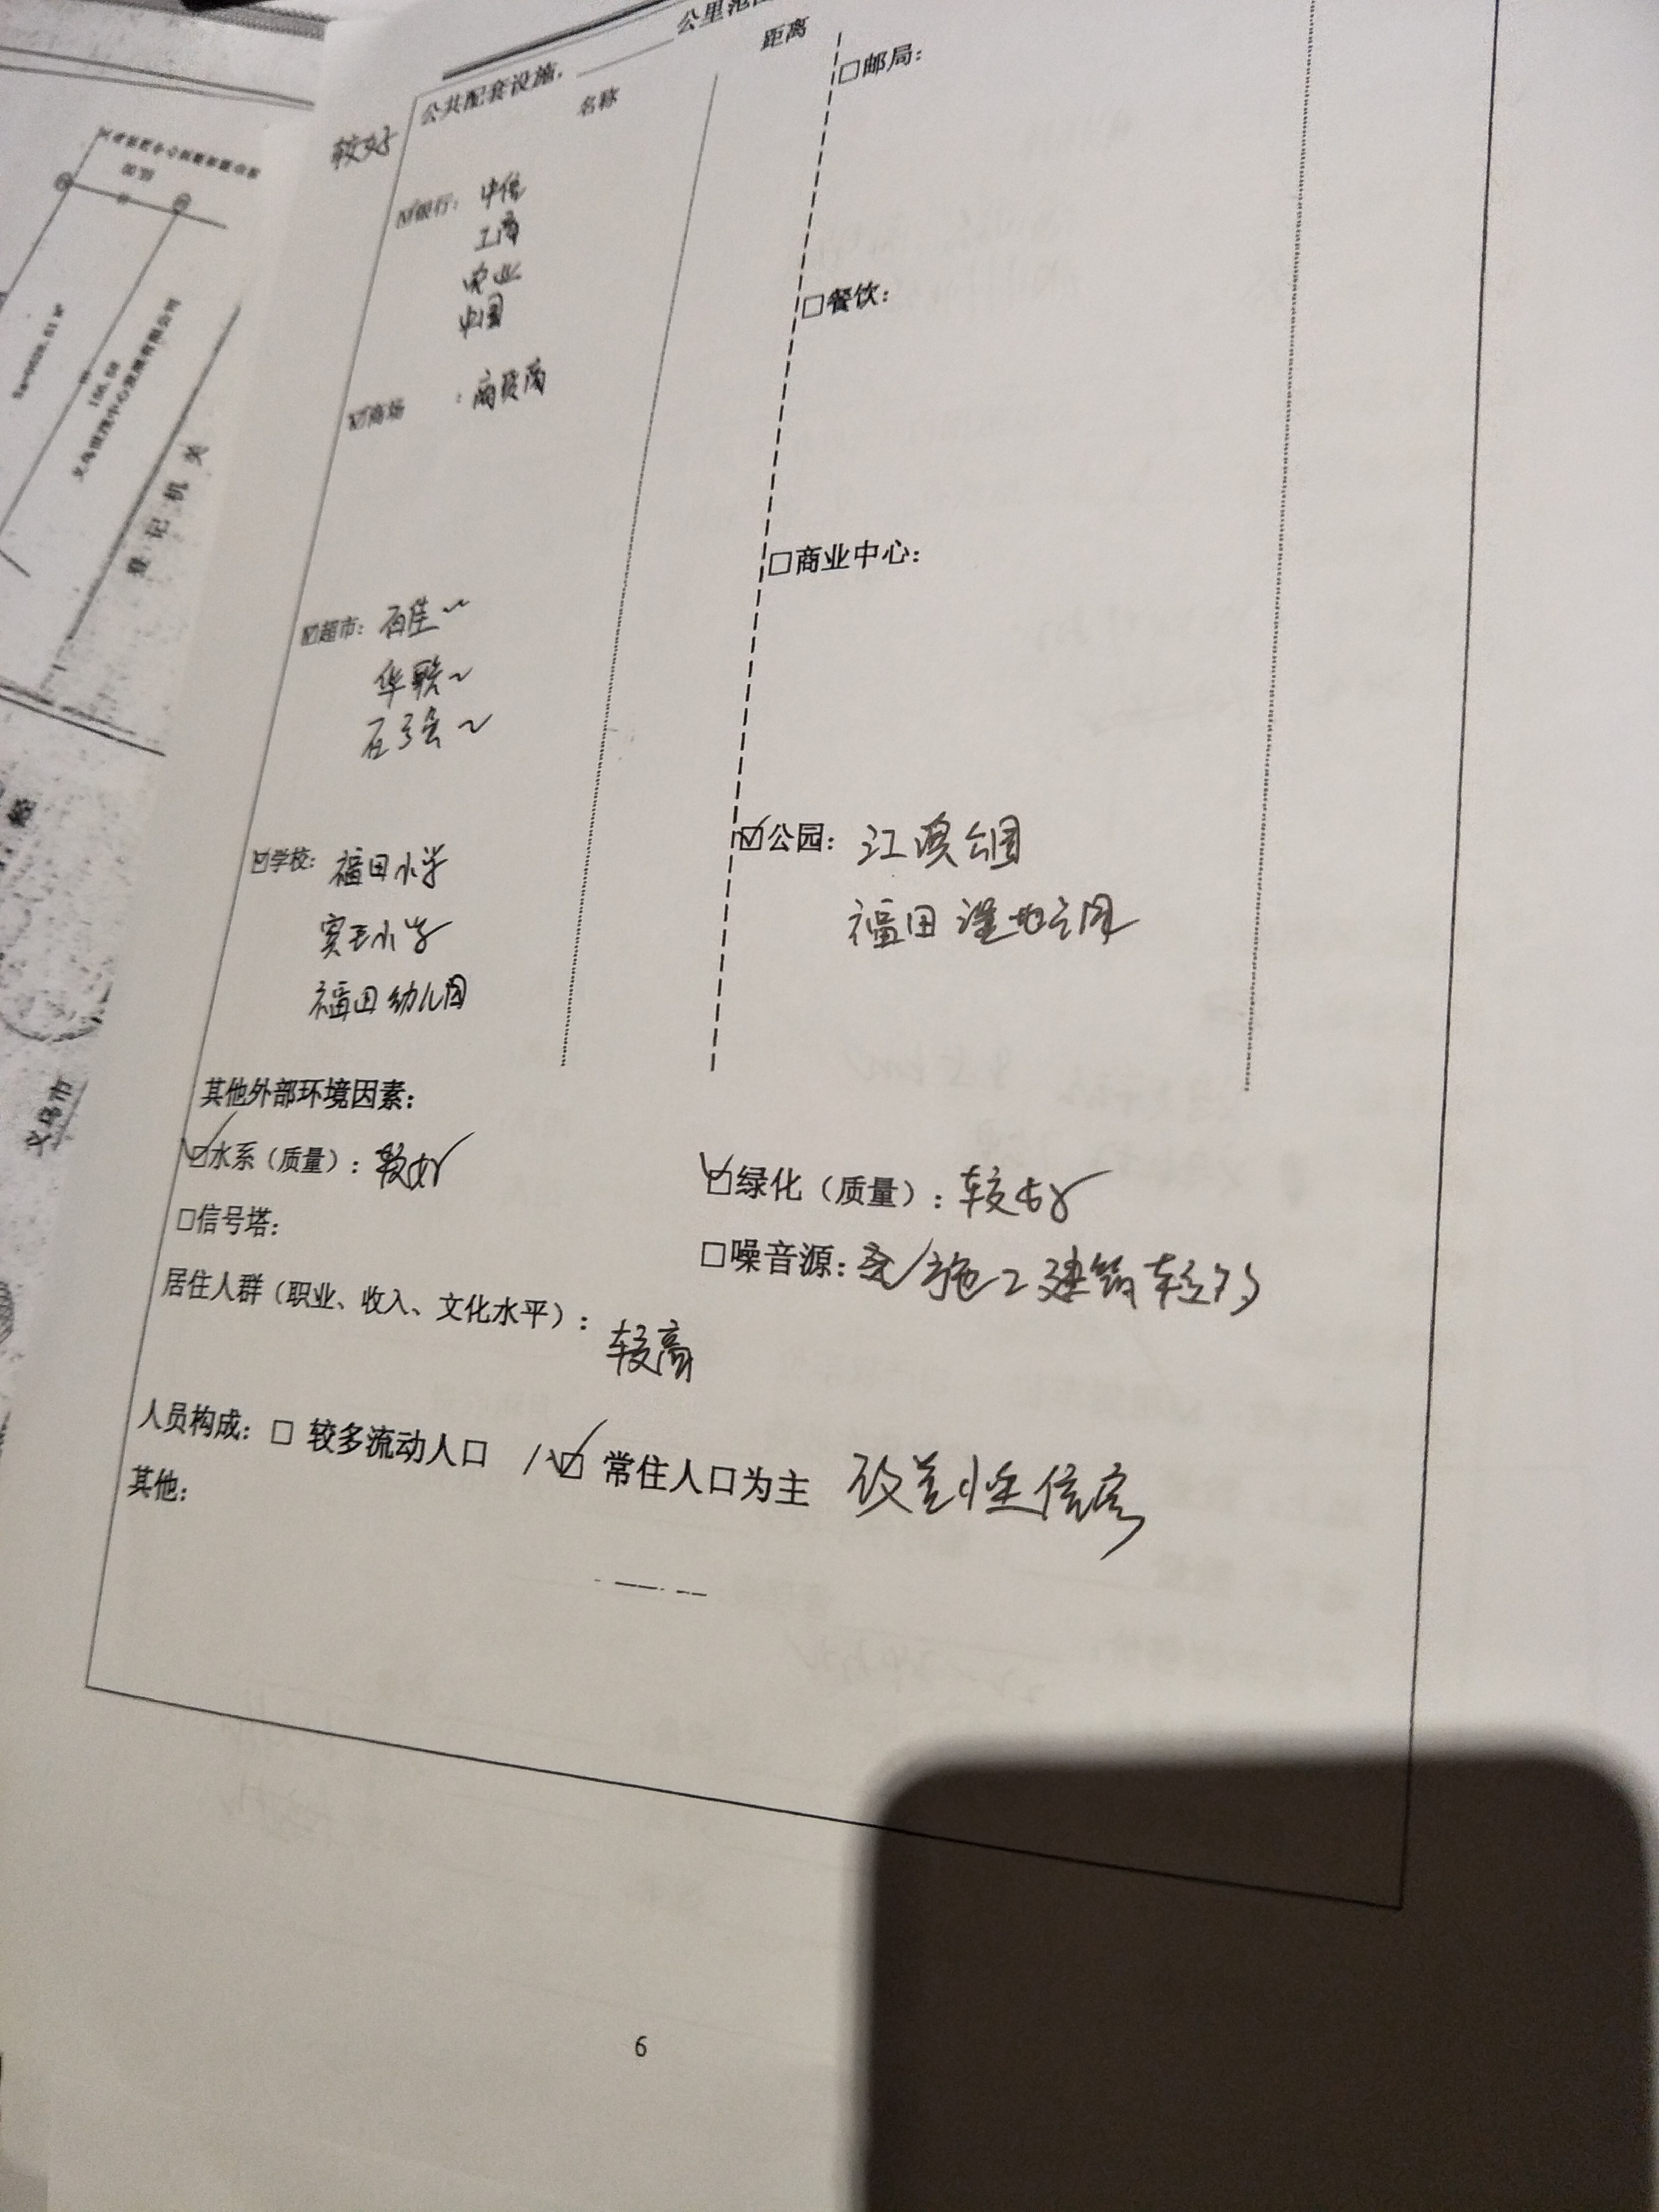 公里范围
公共配套设施.
名称
距离
较好
☑银行：中信
工商
农业
中国
☑商场：商贸商
☑超市：百佳~
华联~
☑学校：福田小学
实王小学
福田幼儿园
□邮局：
□餐饮：
□商业中心：
☑公园：江滨公园
福田湿地公园
其他外部环境因素：
☑水系（质量）：较好
☑绿化（质量）：较好
□信号塔：
□噪音源：施工建筑较多
居住人群（职业、收入、文化水平）：
较高
人员构成：□ 较多流动人口 / ☑ 常住人口为主 改善性住房
其他：
6
登记机关
义乌市